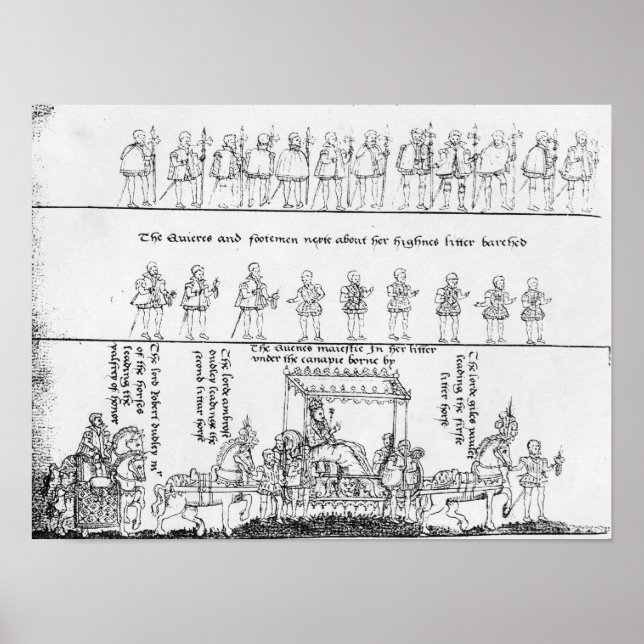 The Quieres and footemen nexte about her highnes litter barehed
The Quenes maiestie In her litter
vnder the canapie borne by
The lord Robert dudley mr
of the horses
leading the
palfrey of honor
The lorde ambrose
dudley leadinge the
second littur horse
The lorde giles paulet
leading the firste
litter horse